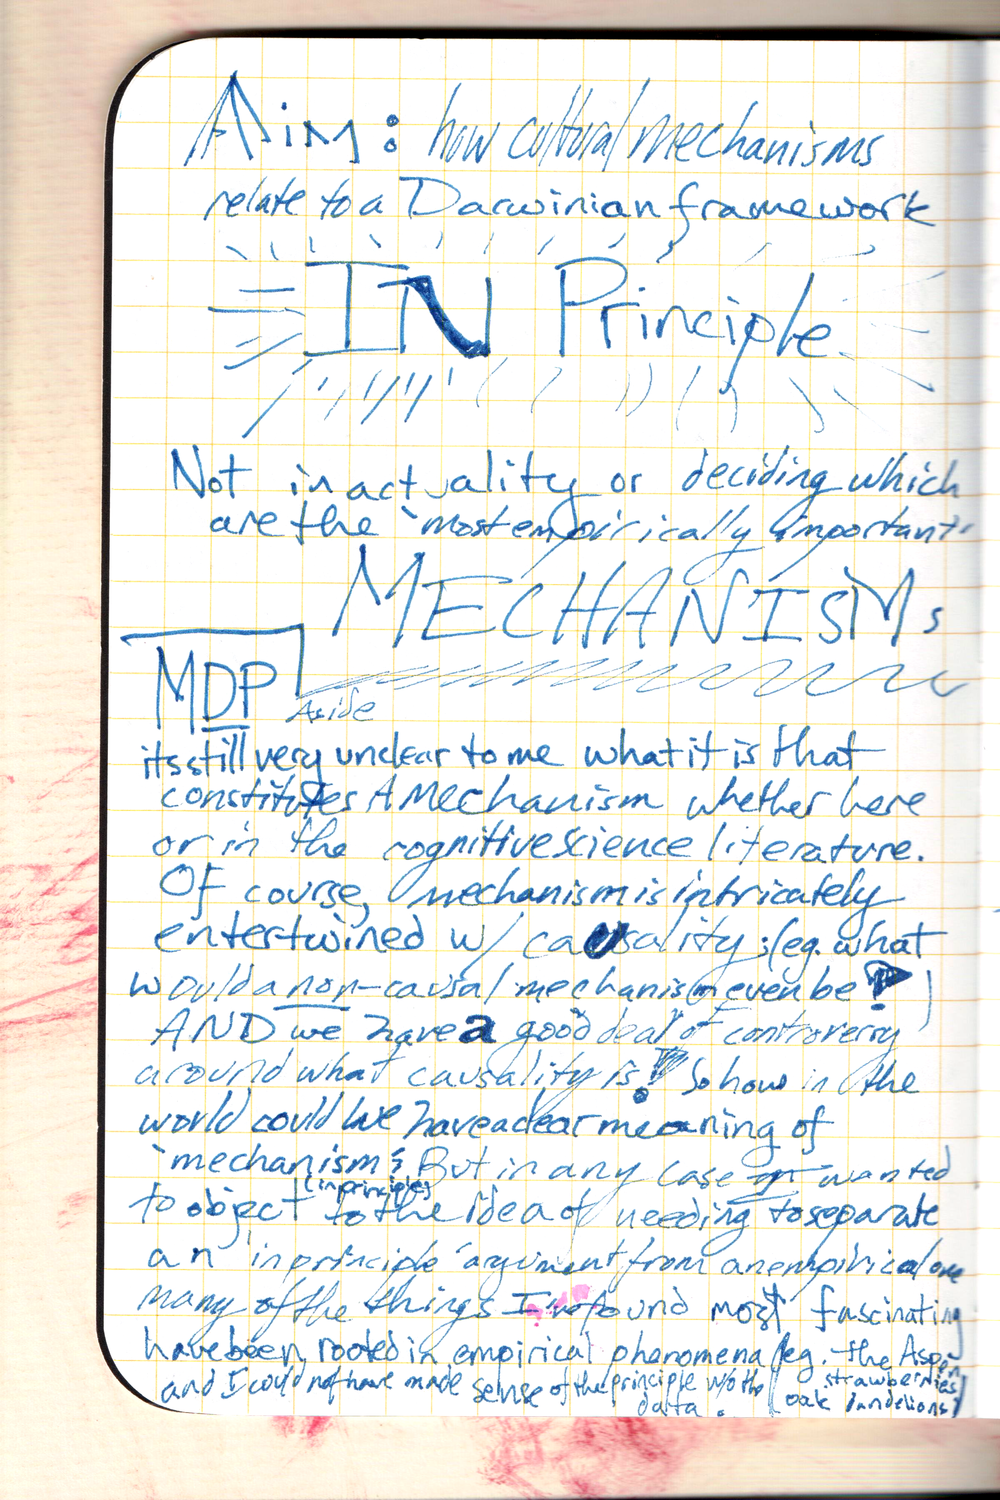 Aim: how cultural mechanisms
relate to a Darwinian framework
IN Principle.
Not in actuality or deciding which
are the 'most empirically important'
MECHANISMs
MDP
Aside
its still very unclear to me what it is that
constitutes A Mechanism whether here
or in the cognitive science literature.
Of course, mechanism is intricately
entertwined w/ causality; (eg. what
would a non-causal mechanism even be?)
AND we have a good deal of controversy
around what causality is! So how in the
world could we have a clear meaning of
'mechanism'? But in any case I wanted
(in principle)
to object to the idea of needing to separate
an 'in principle' argument from an empirical one
many of the things I've found most fascinating
have been rooted in empirical phenomena (eg. the Aspen
strawberries
and I could not have made sense of the principle w/o the
oak dandelions)
data.